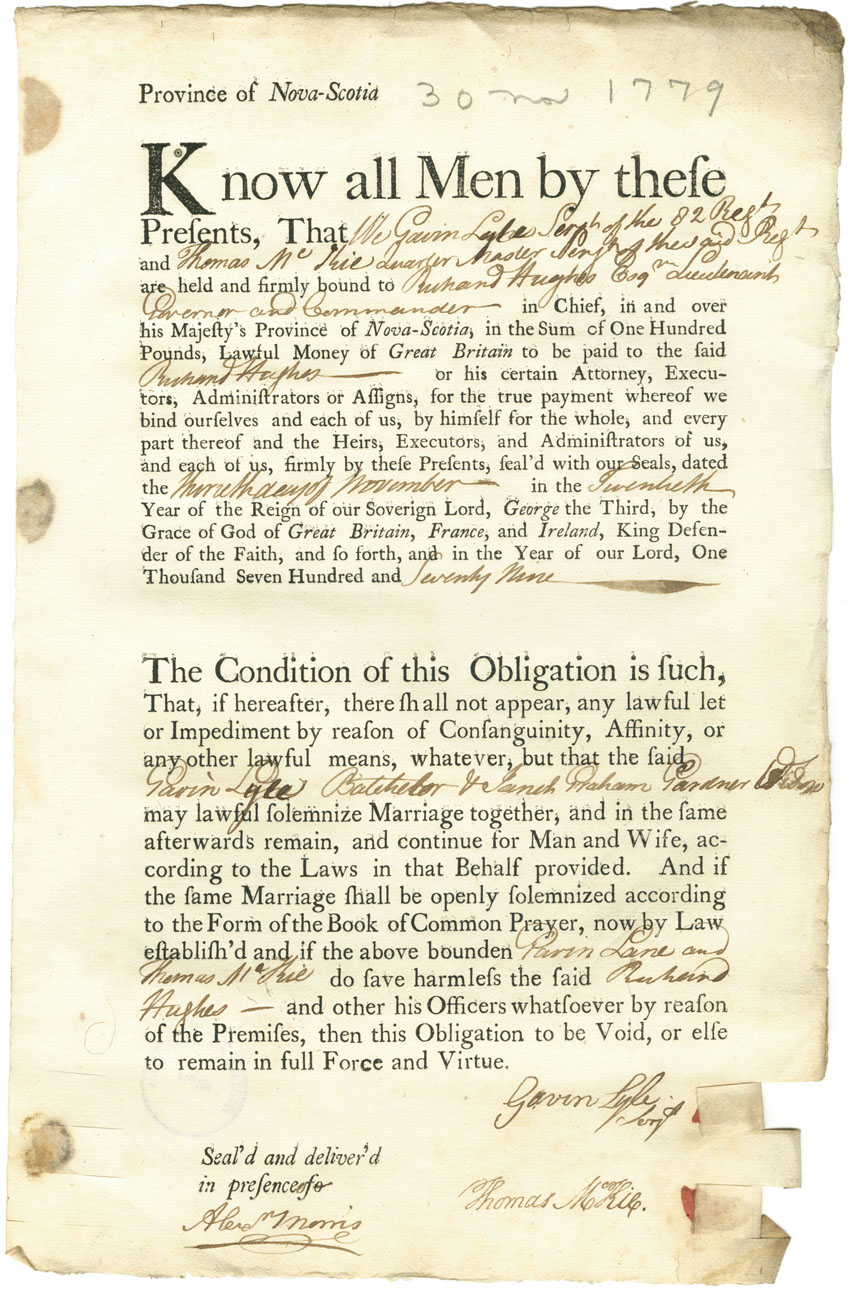 Province of Nova-Scotia 30 Nov 1779
Know all Men by theſe
Preſents, That We Gavin Lyle Serjt of the 82 Regt
and Thomas McKie Quarter Master Serjt of the said Regt
are held and firmly bound to Richard Hughes Esqr Lieutenant
Governor and Commander in Chief, in and over
his Majeſty's Province of Nova-Scotia, in the Sum of One Hundred
Pounds, Lawful Money of Great Britain to be paid to the ſaid
Richard Hughes or his certain Attorney, Execu-
tors, Adminiſtrators or Aſſigns, for the true payment whereof we
bind ourſelves and each of us, by himſelf for the whole, and every
part thereof and the Heirs, Executors, and Adminiſtrators of us,
and each of us, firmly by theſe Preſents, ſeal'd with our Seals, dated
the thirtieth day of November in the Twentieth
Year of the Reign of our Soverign Lord, George the Third, by the
Grace of God of Great Britain, France, and Ireland, King Defen-
der of the Faith, and ſo forth, and in the Year of our Lord, One
Thouſand Seven Hundred and Seventy Nine
The Condition of this Obligation is ſuch,
That, if hereafter, there ſhall not appear, any lawful let
or Impediment by reaſon of Conſanguinity, Affinity, or
any other lawful means, whatever, but that the ſaid
Gavin Lyle Batchelor & Janet Graham Gardner Widow
may lawful ſolemnize Marriage together, and in the ſame
afterwards remain, and continue for Man and Wife, ac-
cording to the Laws in that Behalf provided. And if
the ſame Marriage ſhall be openly ſolemnized according
to the Form of the Book of Common Prayer, now by Law
eſtabliſh'd and if the above bounden Gavin Lane and
Thomas McKie do ſave harmleſs the ſaid Richard
Hughes — and other his Officers whatſoever by reaſon
of the Premiſes, then this Obligation to be Void, or elſe
to remain in full Force and Virtue.
Gavin Lyle
Serjt
Seal'd and deliver'd
in preſence of
Thomas McKie.
Alexr Morris